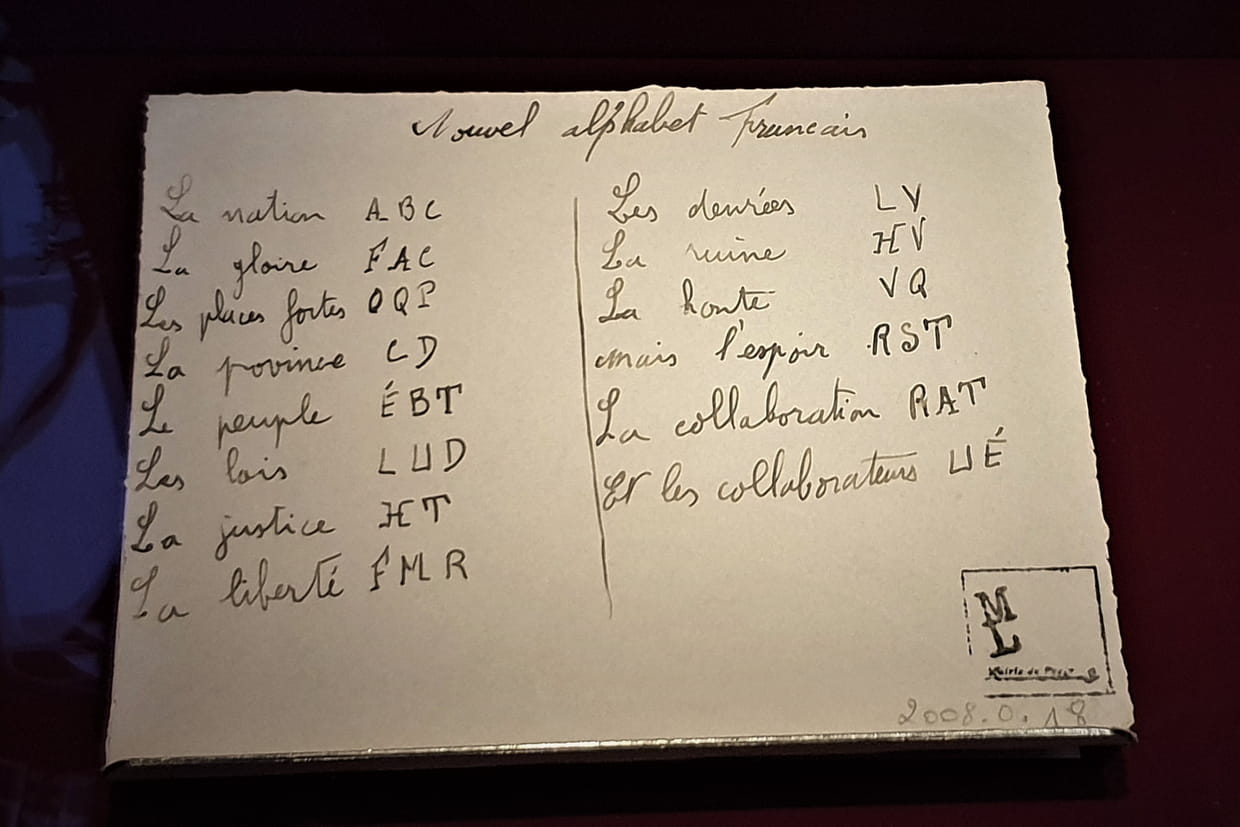 Nouvel alphabet Francais
La nation ABC
La gloire FAC
Les places fortes OQP
La province CD
Le peuple ÉBT
Les lois LUD
La justice HT
La liberté FMR
Les denrées LV
La ruine HV
La honte VQ
mais l'espoir RST
La collaboration RAT
Et les collaborateurs UÉ
ML
Mairie de
2008.0.18